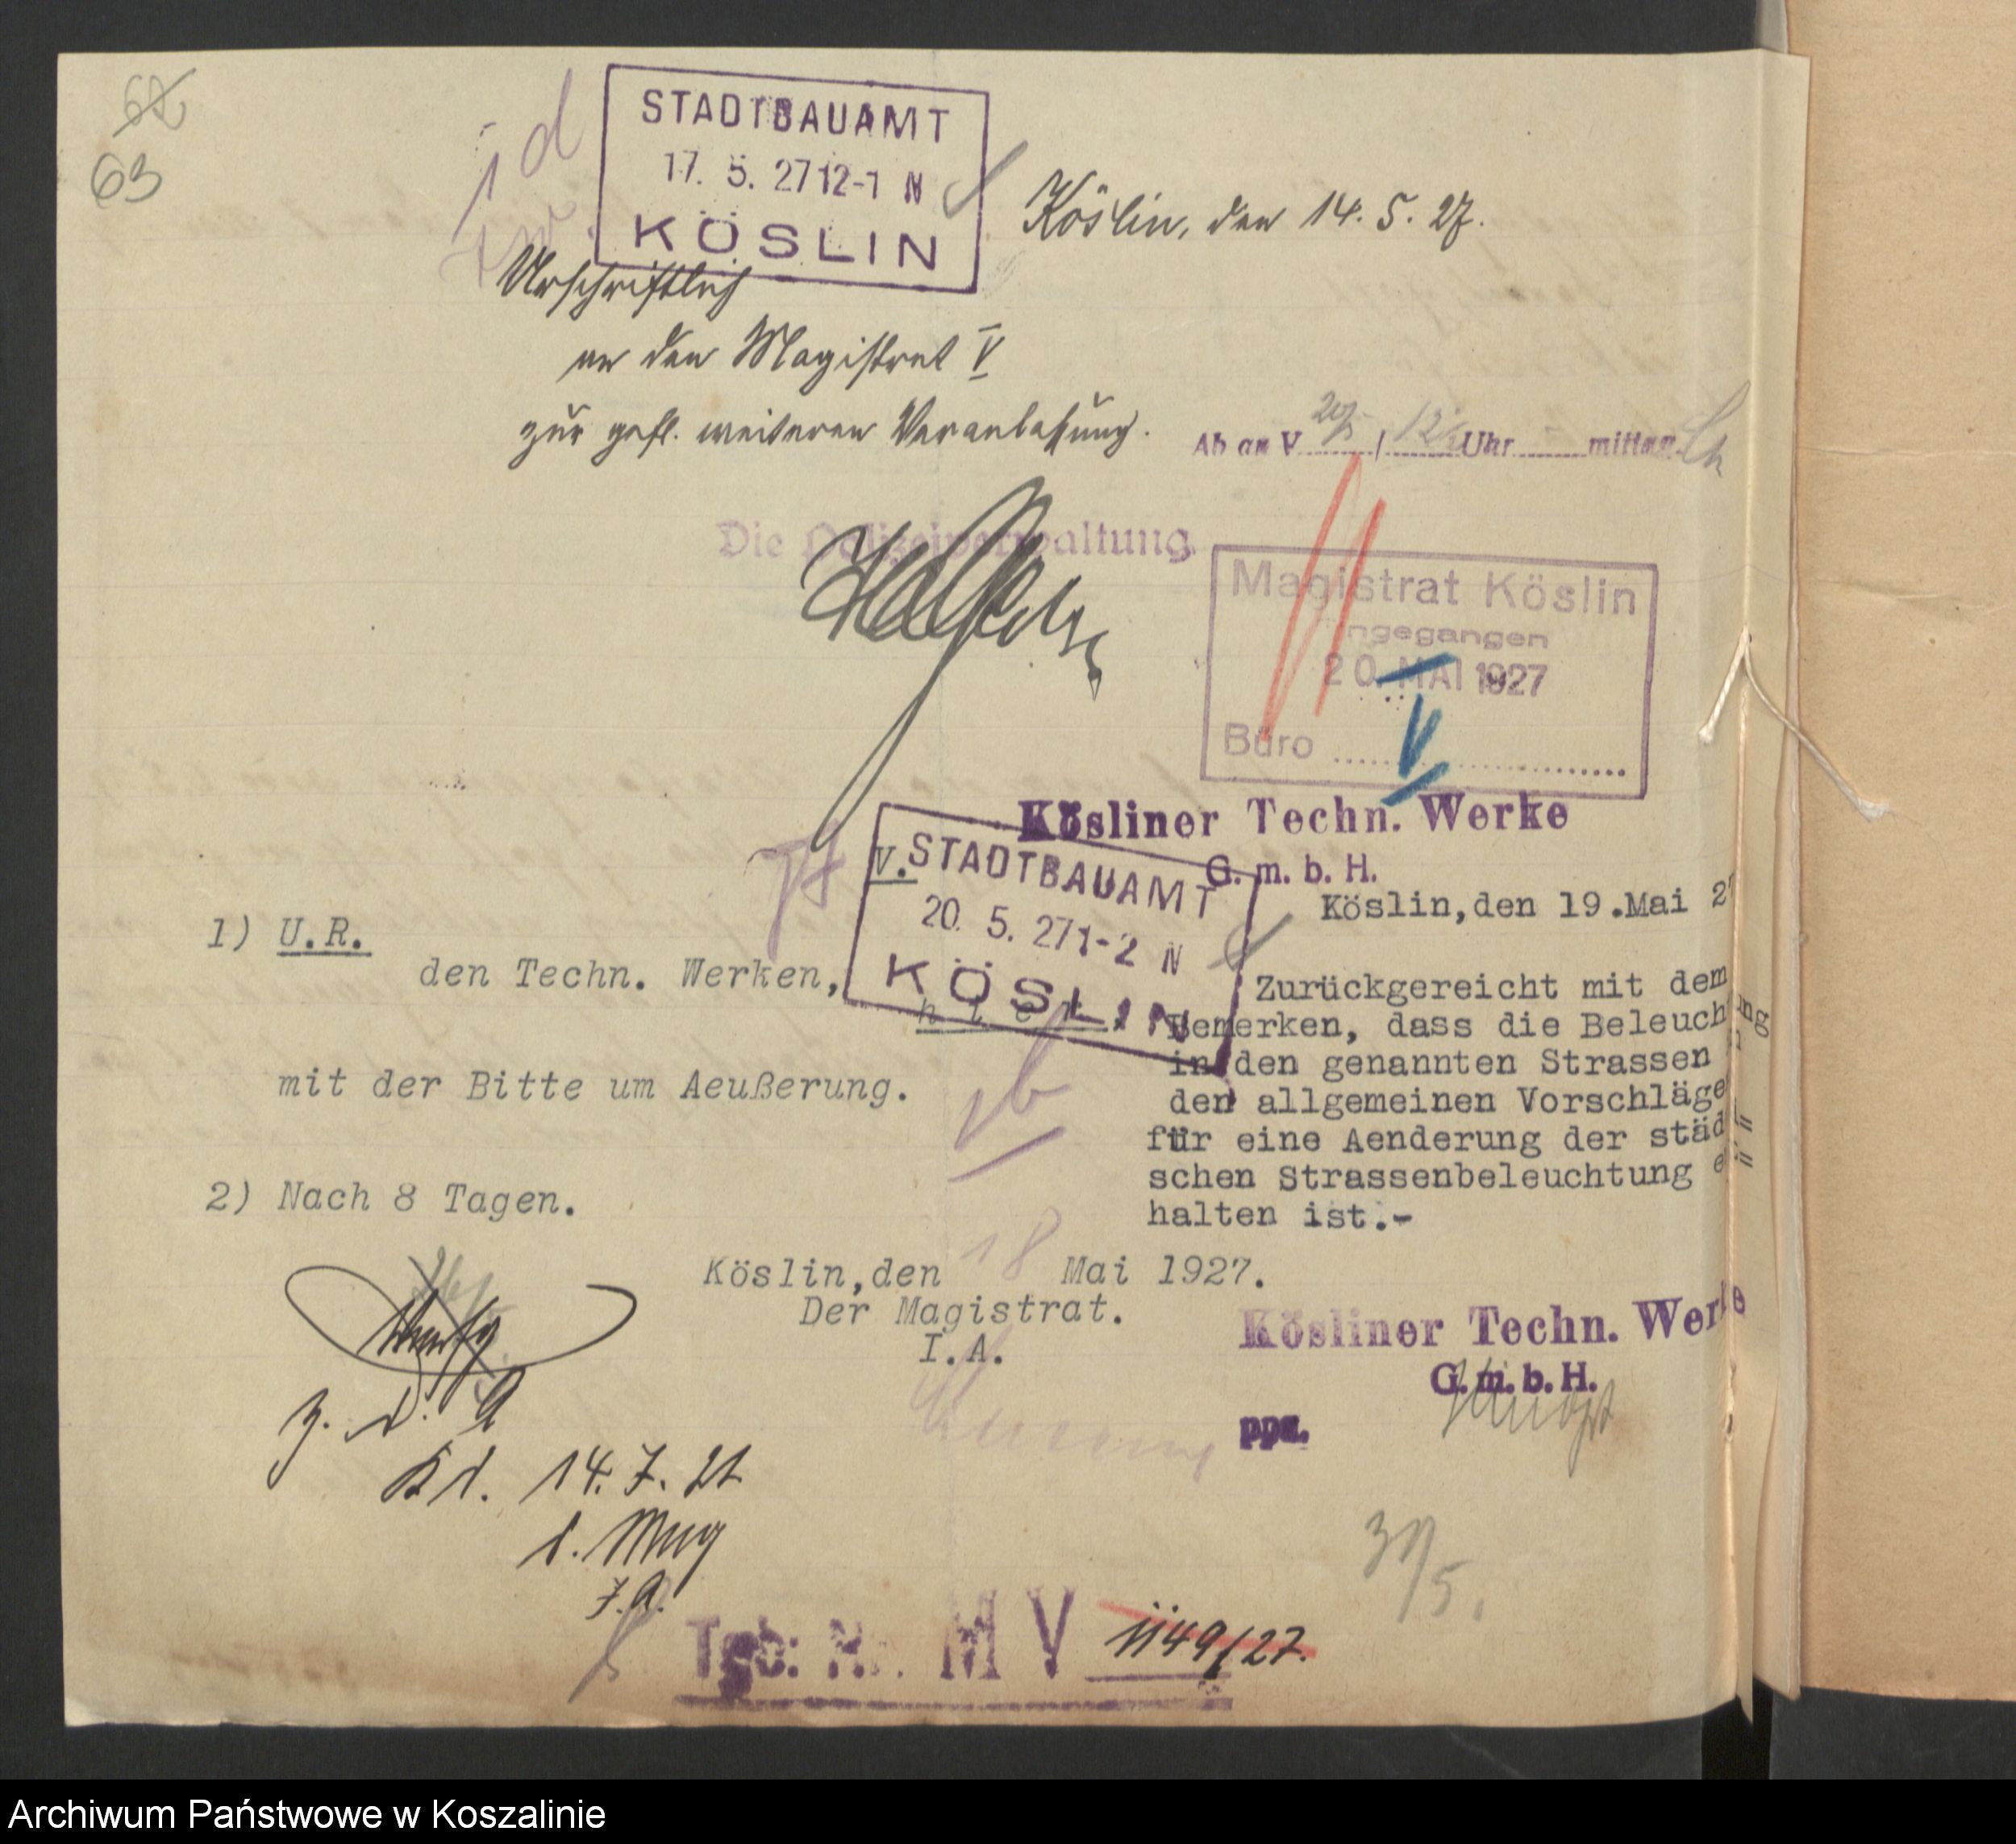 62
63
STADTBAUAMT
17. 5. 27 12-1 N
KÖSLIN
Köslin, den 14. 5. 27.
Urschriftlich
an den Magistrat V
zur gefl. weiteren Veranlassung.
Ab an V / Uhr mittag
Die Polizeiverwaltung
Magistrat Köslin
ngegangen
20. MAI 1927
Büro V
Kösliner Techn. Werke
G. m. b. H.
V.
STADTBAUAMT
20. 5. 27 1-2 N
KÖSLIN
Köslin,den 19.Mai 2
1) U.R.
den Techn. Werken,
h i e r.
mit der Bitte um Aeußerung.
2) Nach 8 Tagen.
Zurückgereicht mit dem
Bemerken, dass die Beleuch ung
in den genannten Strassen
den allgemeinen Vorschläge
für eine Aenderung der städ
schen Strassenbeleuchtung e
halten ist.-
Köslin,den 18 Mai 1927.
Der Magistrat.
I.A.
Kösliner Techn. Werke
G. m. b. H.
ppa.
z. d. A
Kö. 14. 7. 27
d. Mag
J.A.
30/5.
Tgb: Nr. M V 1149/27.
Archiwum Państwowe w Koszalinie